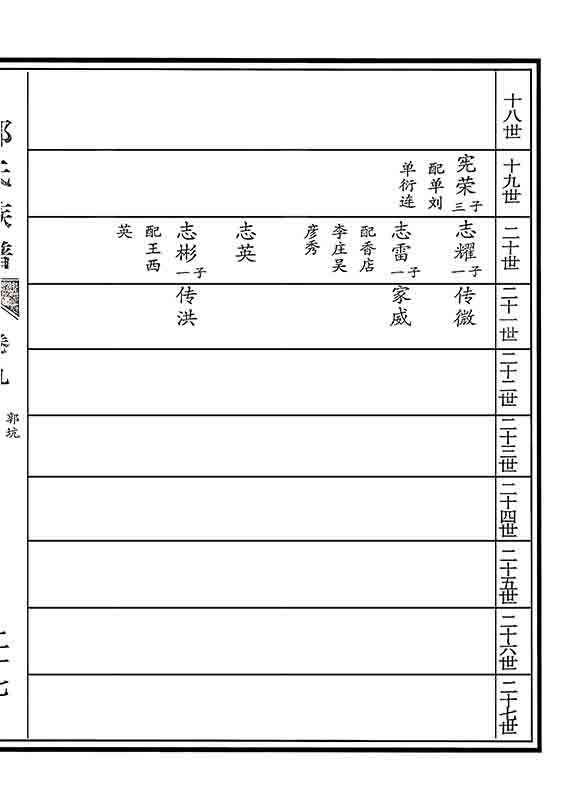 十八世
十九世
宪荣 三子
配单刘
单衍连
二十世
志耀 一子
志雷 一子
配香店
李庄吴
彦秀
志英
志彬 一子
配王西
英
二十一世
传微
家威
传洪
二十二世
二十三世
二十四世
二十五世
二十六世
二十七世
族谱
郭坑